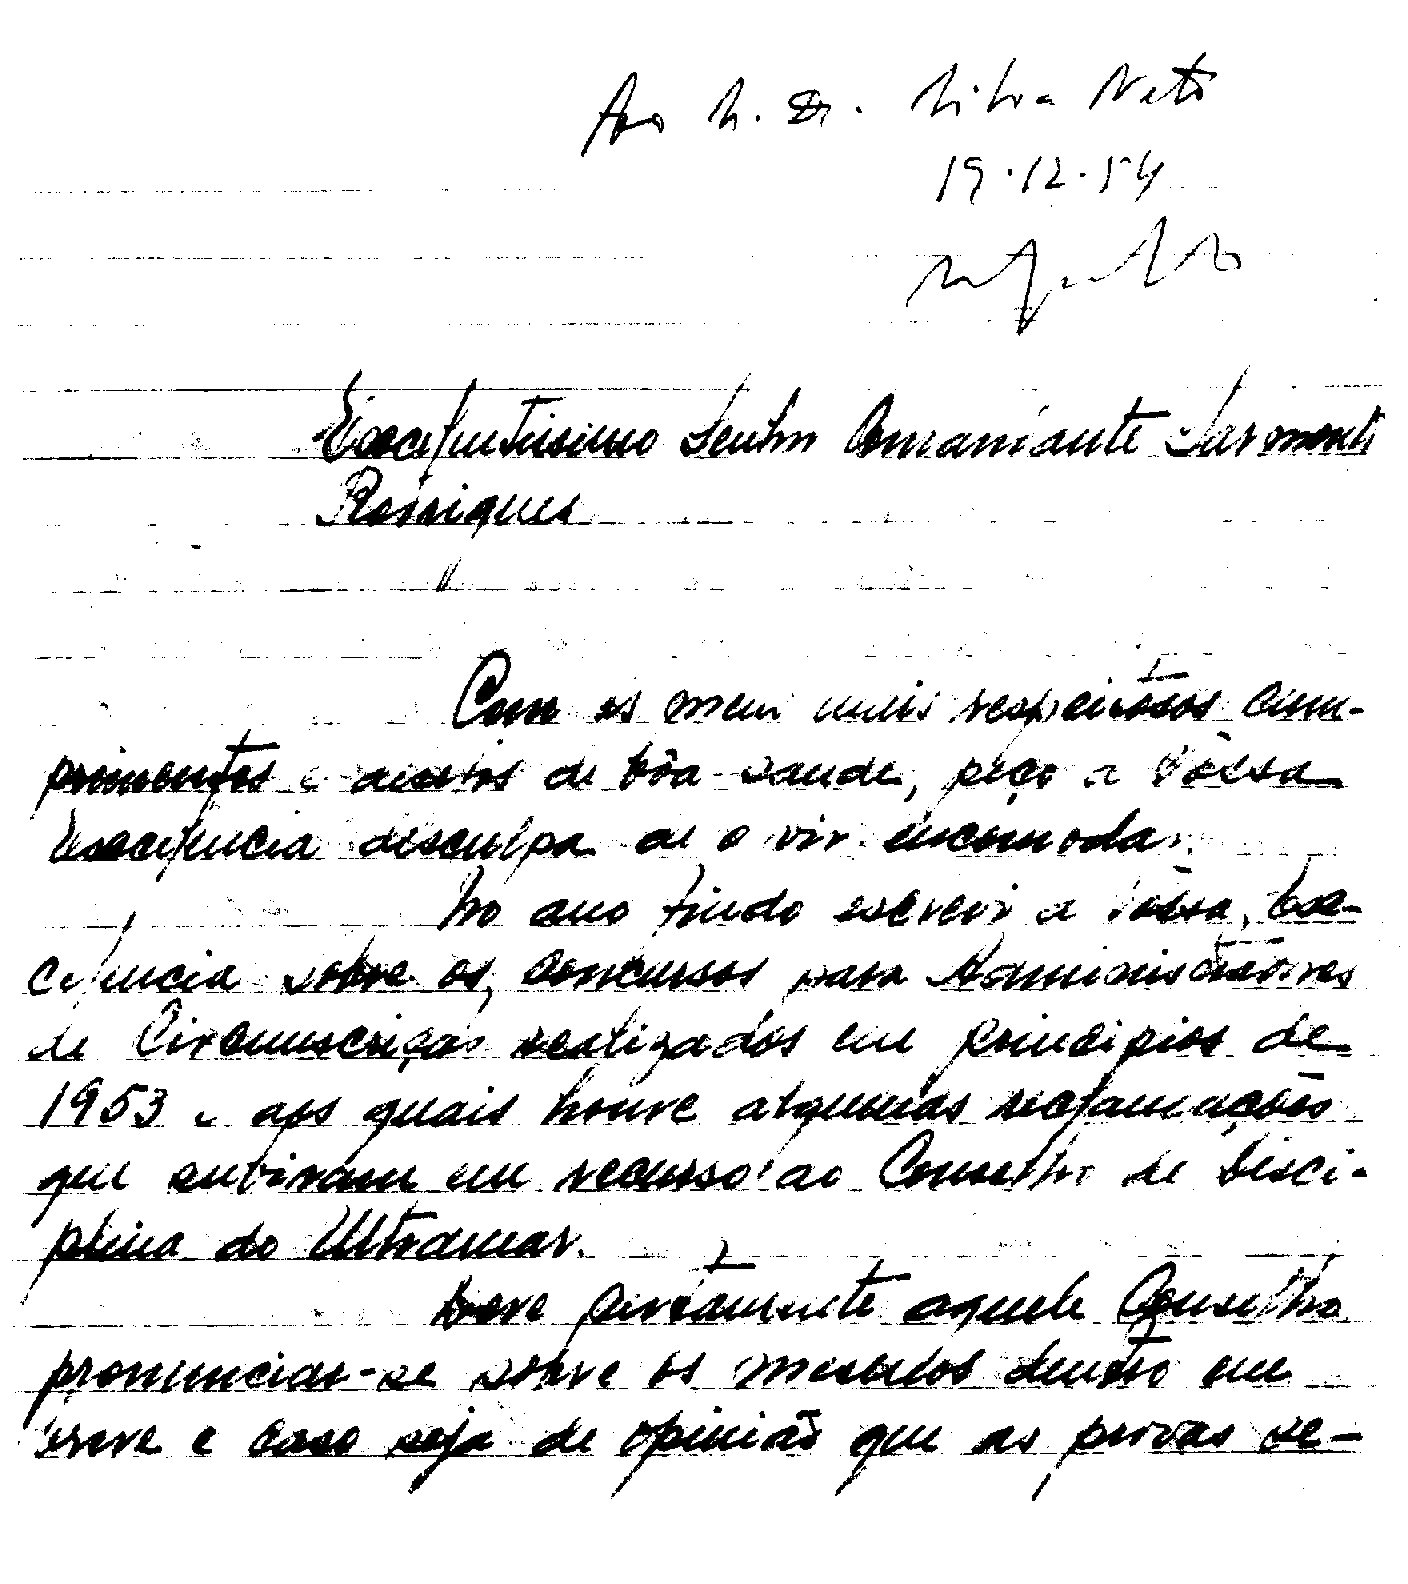 Ao S. Dr. Silva Neto
19.12.54
Excelentissimo Senhor Comandante Sarmento
Rodrigues
Com os meus mais respeitosos cum-
primentos e desejos de bôa saude, peço a Vossa
Excelencia desculpa de o vir incomodar.
No ano findo escrevi a Vossa Exce-
celencia sobre os concursos para Administradores
de Circunscrição realizados em principios de
1953 e aos quais houve algumas reclamações
que subiram em recurso ao Conselho de Disci-
plina do Ultramar.
Deve certamente aquele Conselho
pronunciar-se sobre os mesmos dentro em
breve e caso seja de opinião que as provas se-